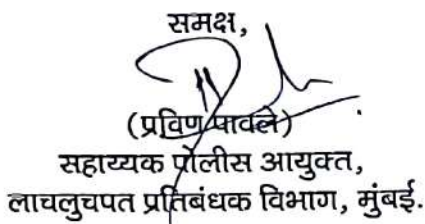 समक्ष,
(प्रविण पावले)
सहाय्यक पोलीस आयुक्त,
लाचलुचपत प्रतिबंधक विभाग, मुंबई.